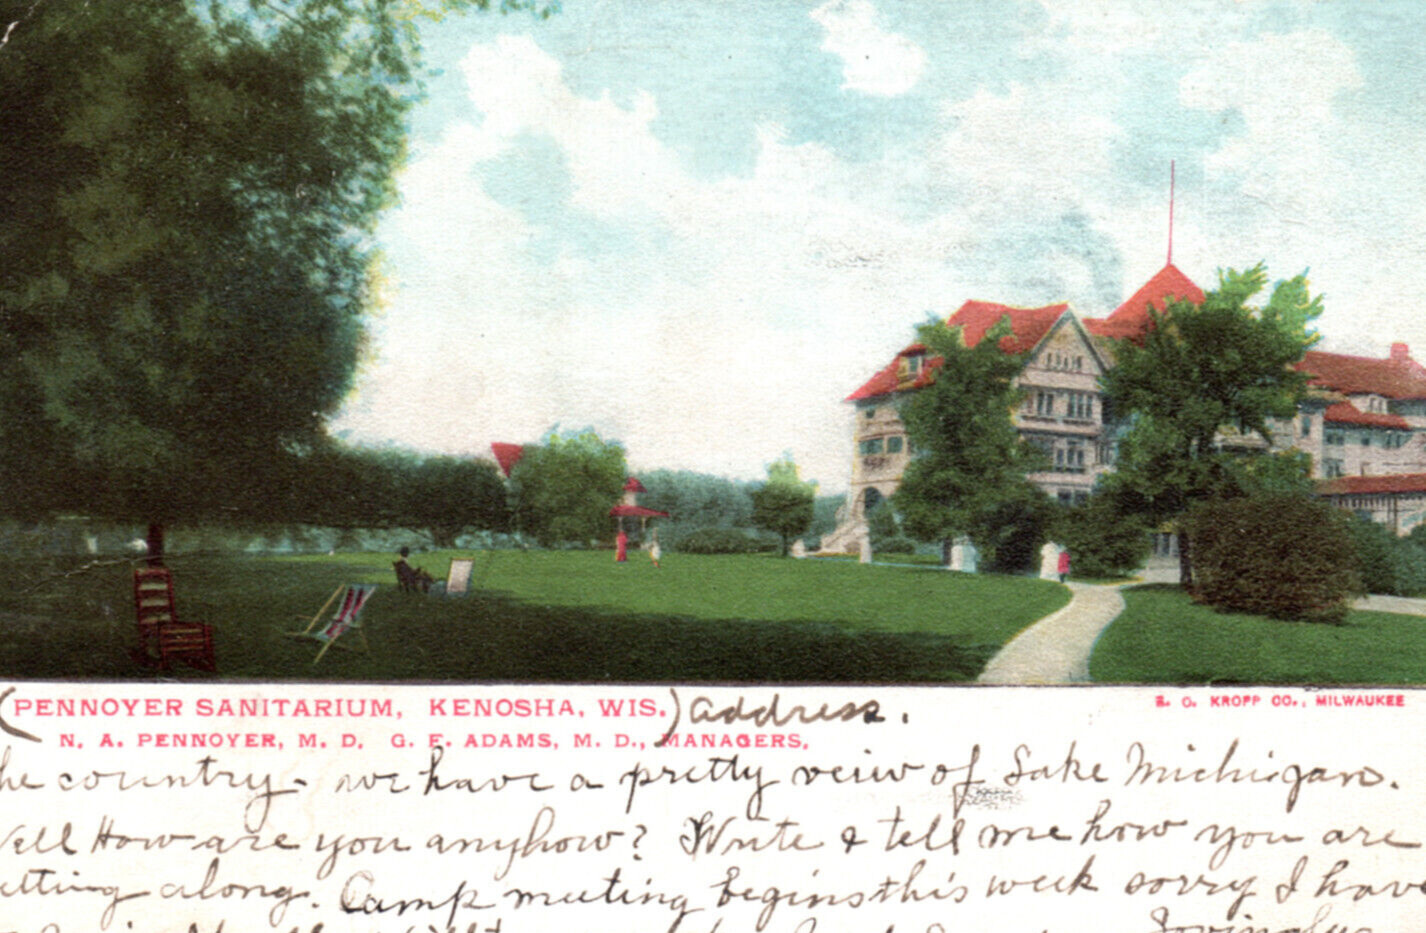 (PENNOYER SANITARIUM, KENOSHA, WIS.) address.
E. C. KROPP CO., MILWAUKEE
N. A. PENNOYER, M. D. G. F. ADAMS, M. D., MANAGERS.
he country - we have a pretty view of Lake Michigan.
ell How are you anyhow? Write & tell me how you are
etting along. Camp meeting begins this week sorry I have
Lovingly